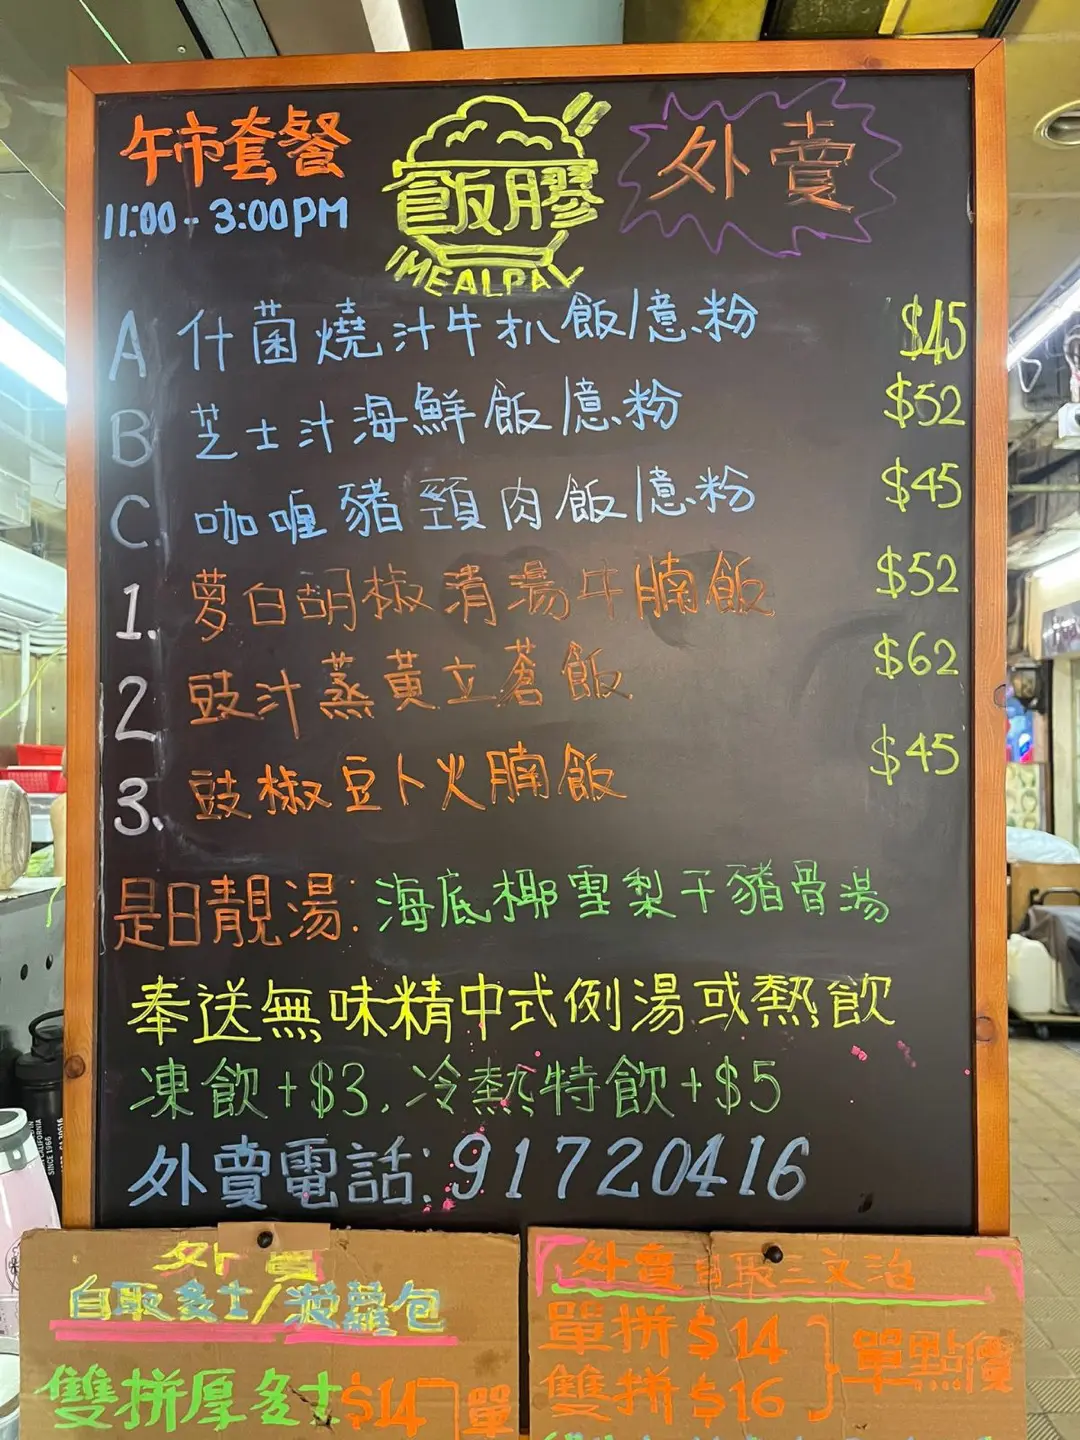 午市套餐
11:00 - 3:00PM
飯膠
MEALPAL
外賣
A 什菌燒汁牛扒飯/意粉 $45
B 芝士汁海鮮飯/意粉 $52
C. 咖喱豬頸肉飯/意粉 $45
1. 萝白胡椒清湯牛腩飯 $52
2 豉汁蒸黃立蒼飯 $62
3. 豉椒豆卜火腩飯 $45
是日靚湯: 海底椰雪梨干豬骨湯
奉送無味精中式例湯或熱飲
凍飲+$3, 冷熱特飲+$5
外賣電話: 91720416
外賣
自取多士/菠蘿包
雙拼厚多士$14 單
外賣自取三文治
單拼$14
雙拼$16
單點價